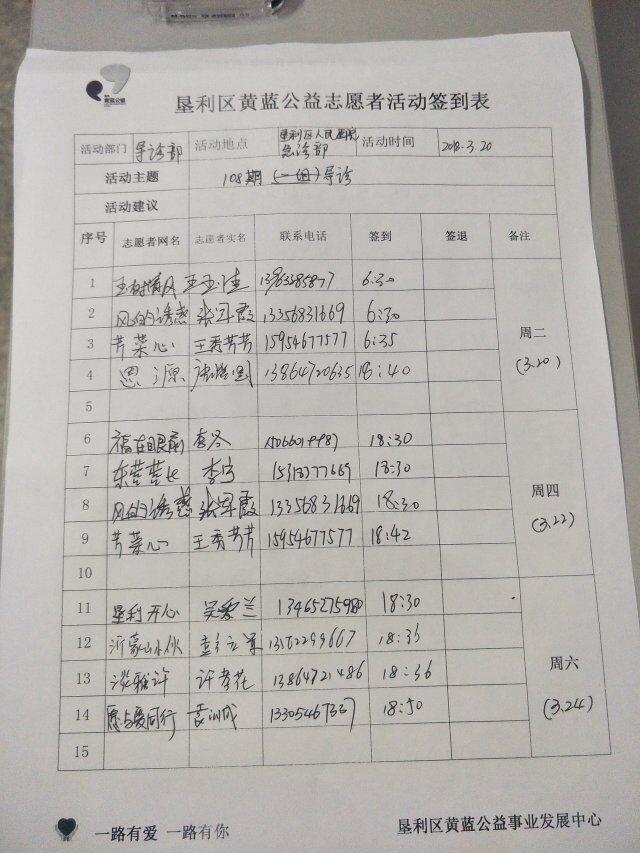 黄蓝公益
垦利区黄蓝公益志愿者活动签到表
活动部门 导诊部 活动地点 垦利区人民医院急诊部 活动时间 2018.3.20
活动主题 108期(一组)导诊
活动建议
序号 志愿者网名 志愿者实名 联系电话 签到 签退 备注
1 玉树情风 王玉佳 6:30
2 风的诱惑 张军霞 13356831669 6:30
3 芹菜心 王秀芳芳 15954677577 6:35
4 思源 13864720635 18:40
周二
(3.20)
5
6 福在眼前 18:30
7 李宁 15318777669 18:30
8 风的诱惑 张军霞 13356831669 18:30
9 芹菜心 王秀芳芳 15954677577 18:42
周四
(3.22)
10
11 垦利开心 吴爱兰 13465275980 18:30
12 沂蒙山小伙 18:36
13 淡雅许 许孝花 13864721486 18:36
14 愿与爱同行 18:50
周六
(3.24)
15
一路有爱 一路有你
垦利区黄蓝公益事业发展中心